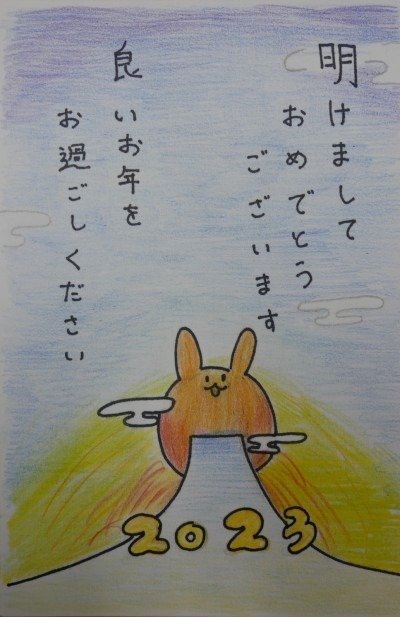 明けまして
おめでとう
ございます
良いお年を
お過ごしください
2023